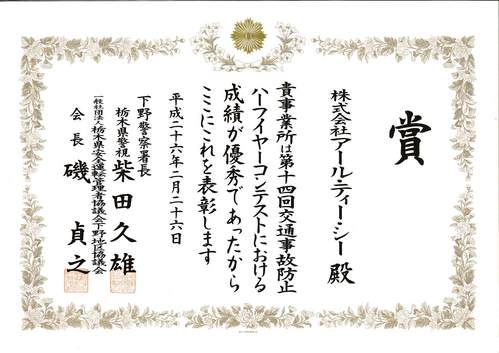 賞
株式会社アール・ティー・シー 殿
貴事業所は第十四回交通事故防止
ハーフイヤーコンテストにおける
成績が優秀であったから
ここにこれを表彰します
平成二十六年二月二十六日
下野警察署長
栃木県警視 柴田久雄
一般社団法人栃木県安全運転管理者協議会下野地区協議会
会長 磯 貞之